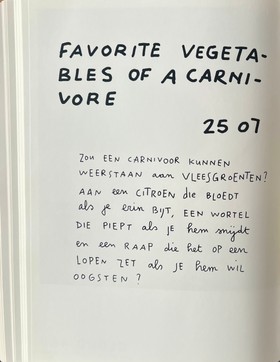 FAVORITE VEGETA-
BLES OF A CARNI-
VORE
25 07
ZOU EEN CARNIVOOR KUNNEN
WEERSTAAN aan VLEESGROENTEN?
AAN een CITROEN die BLOEDT
als je erin BIJT, EEN WORTEL
DIE PIEPT als JE hem snijdt
en een RAAP die het OP een
LOPEN ZET als JE HEM WIL
OOGSTEN?